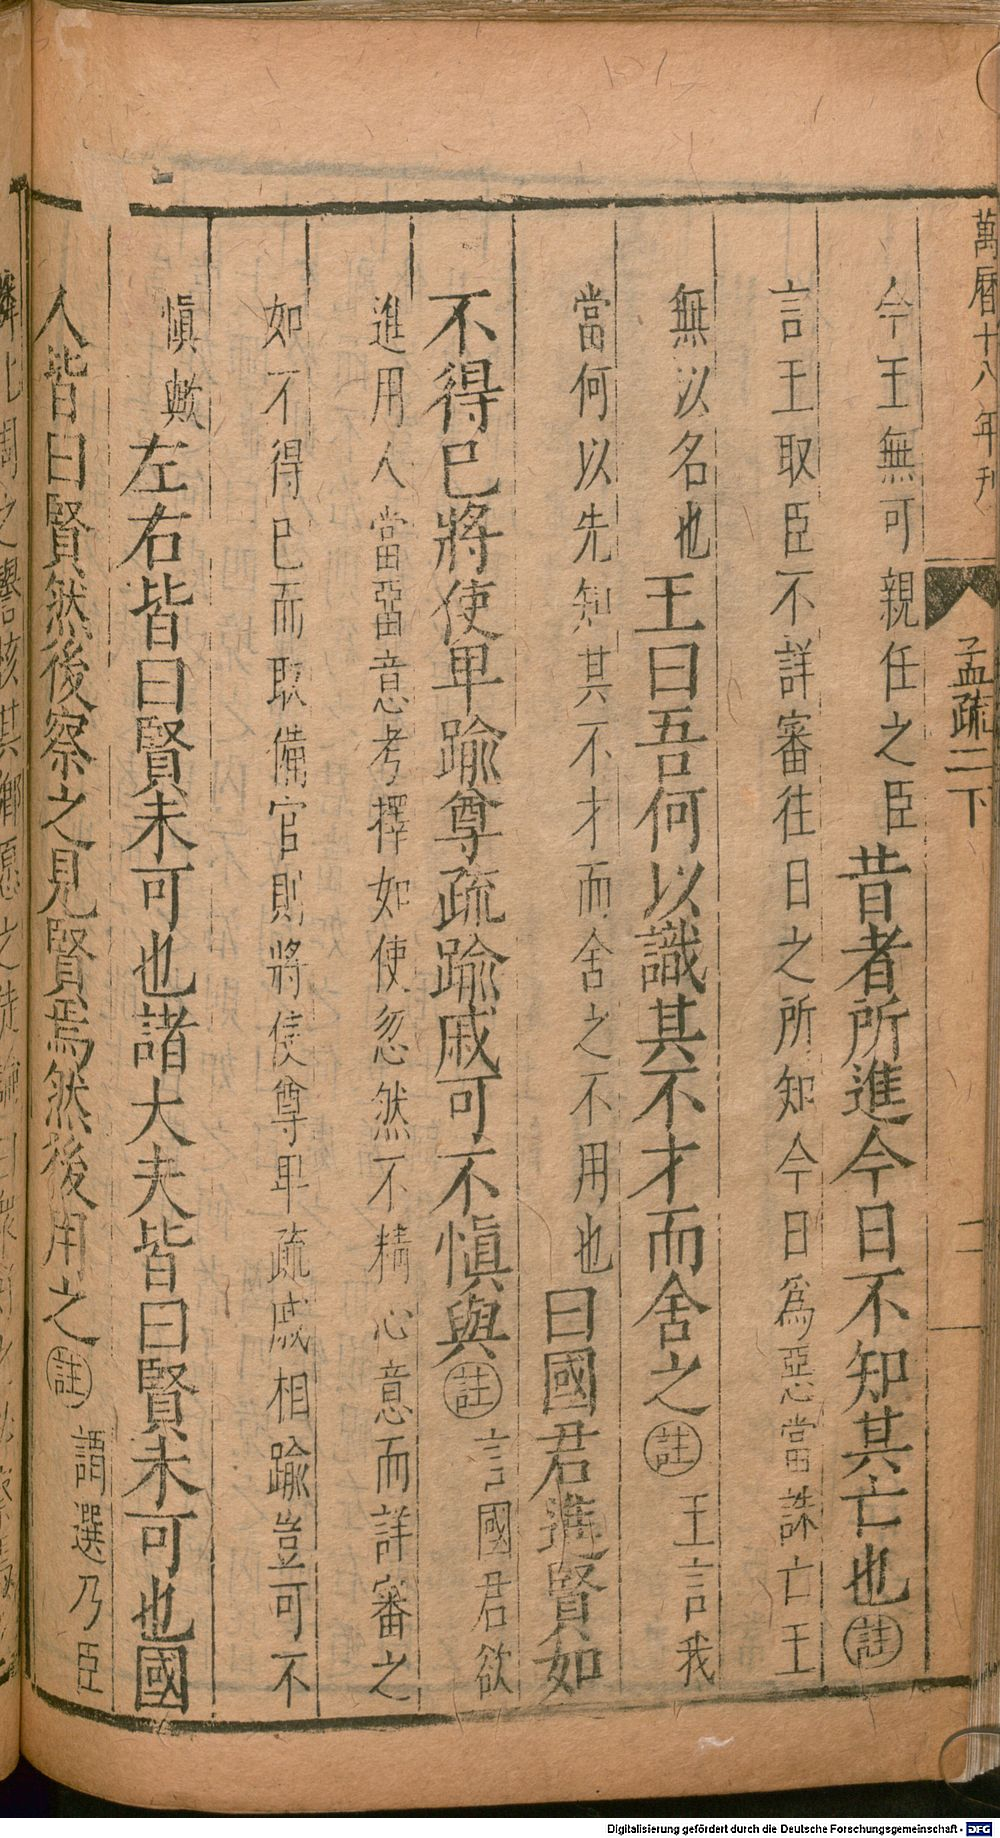 萬曆十八年刊
孟疏二下
二
今王無可親任之臣昔者所進今日不知其亡也註
言王取臣不詳審往日之所知今日爲惡當誅亡王
無以名也王曰吾何以識其不才而舍之註王言我
當何以先知其不才而舍之不用也曰國君進賢如
不得已將使卑踰尊疏踰戚可不愼與註言國君欲
進用人當留意考擇如使忽然不精心意而詳審之
如不得已而取備官則將使尊卑疏戚相踰豈可不
愼歟左右皆曰賢未可也諸大夫皆曰賢未可也國
人皆曰賢然後察之見賢焉然後用之註謂選乃臣
Digitalisierung gefördert durch die Deutsche Forschungsgemeinschaft - DFG